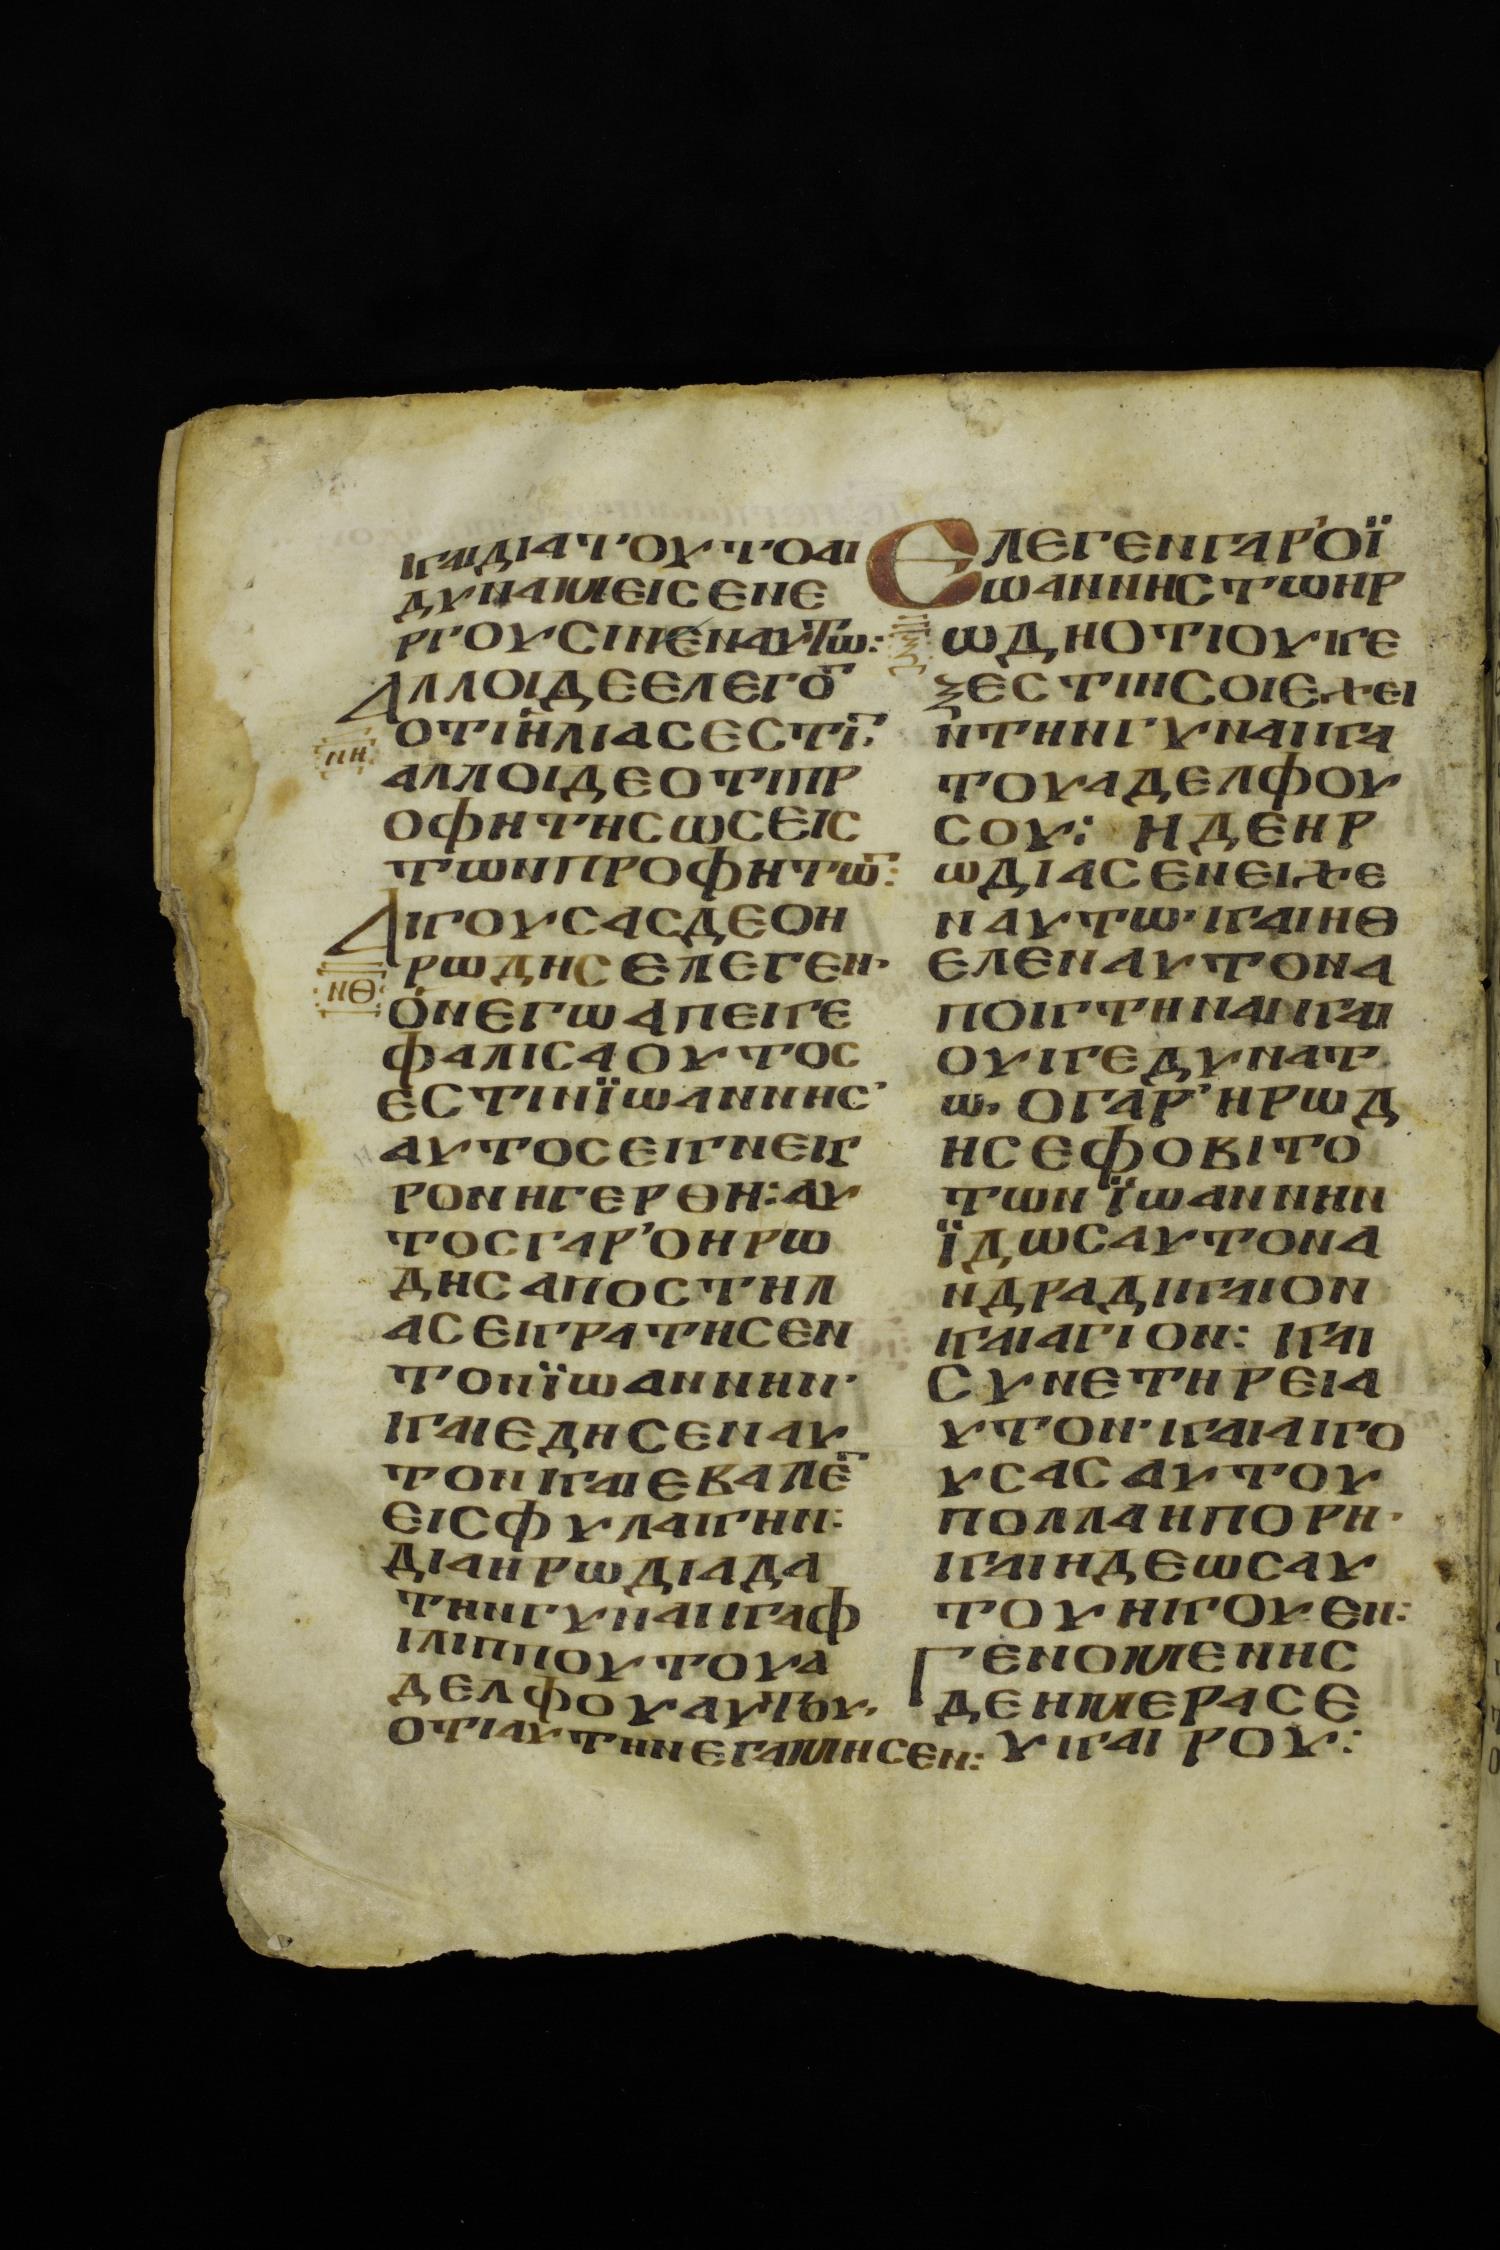 ΚΑΙΔΙΑΤΟΥΤΟΑΙ
ΔΥΝΑΜΕΙϹΕΝΕ
ΡΓΟΥϹΙΝΕΝΑΥΤΩ:
ΑΛΛΟΙΔΕΕΛΕΓΟ̅
ΝΗ
ΟΤΙΗΛΙΑϹΕϹΤΙ̅:
ΑΛΛΟΙΔΕΟΤΙΠΡ
ΟΦΗΤΗϹΩϹΕΙϹ
ΤΩΝΠΡΟΦΗΤΩ̅:
ΑΚΟΥϹΑϹΔΕΟΗ
ΡΩΔΗϹΕΛΕΓΕΝ·
ΝΘ
ΟΝΕΓΩΑΠΕΚΕ
ΦΑΛΙϹΑΟΥΤΟϹ
ΕϹΤΙΝΪΩΑΝΝΗϹ'
ΑΥΤΟϹΕΚΝΕΚ
ΡΟΝΗΓΕΡΘΗ:ΑΥ
ΤΟϹΓΑΡ'ΟΗΡΩ
ΔΗϹΑΠΟϹΤΗΛ
ΑϹΕΚΡΑΤΗϹΕΝ
ΤΟΝΪΩΑΝΝΗΝ·
ΚΑΙΕΔΗϹΕΝΑΥ
ΤΟΝΚΑΙΕΒΑΛΕ̅
ΕΙϹΦΥΛΑΚΗΝ:
ΔΙΑΗΡΩΔΙΑΔΑ
ΤΗΝΓΥΝΑΙΚΑΦ
ΙΛΙΠΠΟΥΤΟΥΑ
ΔΕΛΦΟΥΑΥΤΟΥ·
ΟΤΙΑΥΤΗΝΕΓΑΜΗϹΕΝ:
ΕΛΕΓΕΝΓΑΡ'ΟΪ
ΩΑΝΝΗϹΤΩΗΡ
ΩΔΗΟΤΙΟΥΚΕ
ΞΕϹΤΙΝϹΟΙΕΧΕΙ
ΝΤΗΝΓΥΝΑΙΚΑ
ΤΟΥΑΔΕΛΦΟΥ
ϹΟΥ: ΗΔΕΗΡ
ΩΔΙΑϹΕΝΕΙΧΕ
ΝΑΥΤΩ·ΚΑΙΗΘ
ΕΛΕΝΑΥΤΟΝΑ
ΠΟΚΤΗΝΑΙΚΑΙ
ΟΥΚΕΔΥΝΑΤ
Ω·ΟΓΑΡ'ΗΡΩΔ
ΗϹΕΦΟΒΙΤΟ
ΤΩΝΪΩΑΝΝΗΝ
ΪΔΩϹΑΥΤΟΝΑ
ΝΔΡΑΔΙΚΑΙΟΝ
ΚΑΙΑΓΙΟΝ: ΚΑΙ
ϹΥΝΕΤΗΡΕΙΑ
ΥΤΟΝ·ΚΑΙΑΚΟ
ΥϹΑϹΑΥΤΟΥ
ΠΟΛΛΑΗΠΟΡΗ·
ΚΑΙΗΔΕΩϹΑΥ
ΤΟΥΗΚΟΥΕΝ:
ΓΕΝΟΜΕΝΗϹ
ΔΕΗΜΕΡΑϹΕ
ΥΚΑΙΡΟΥ: